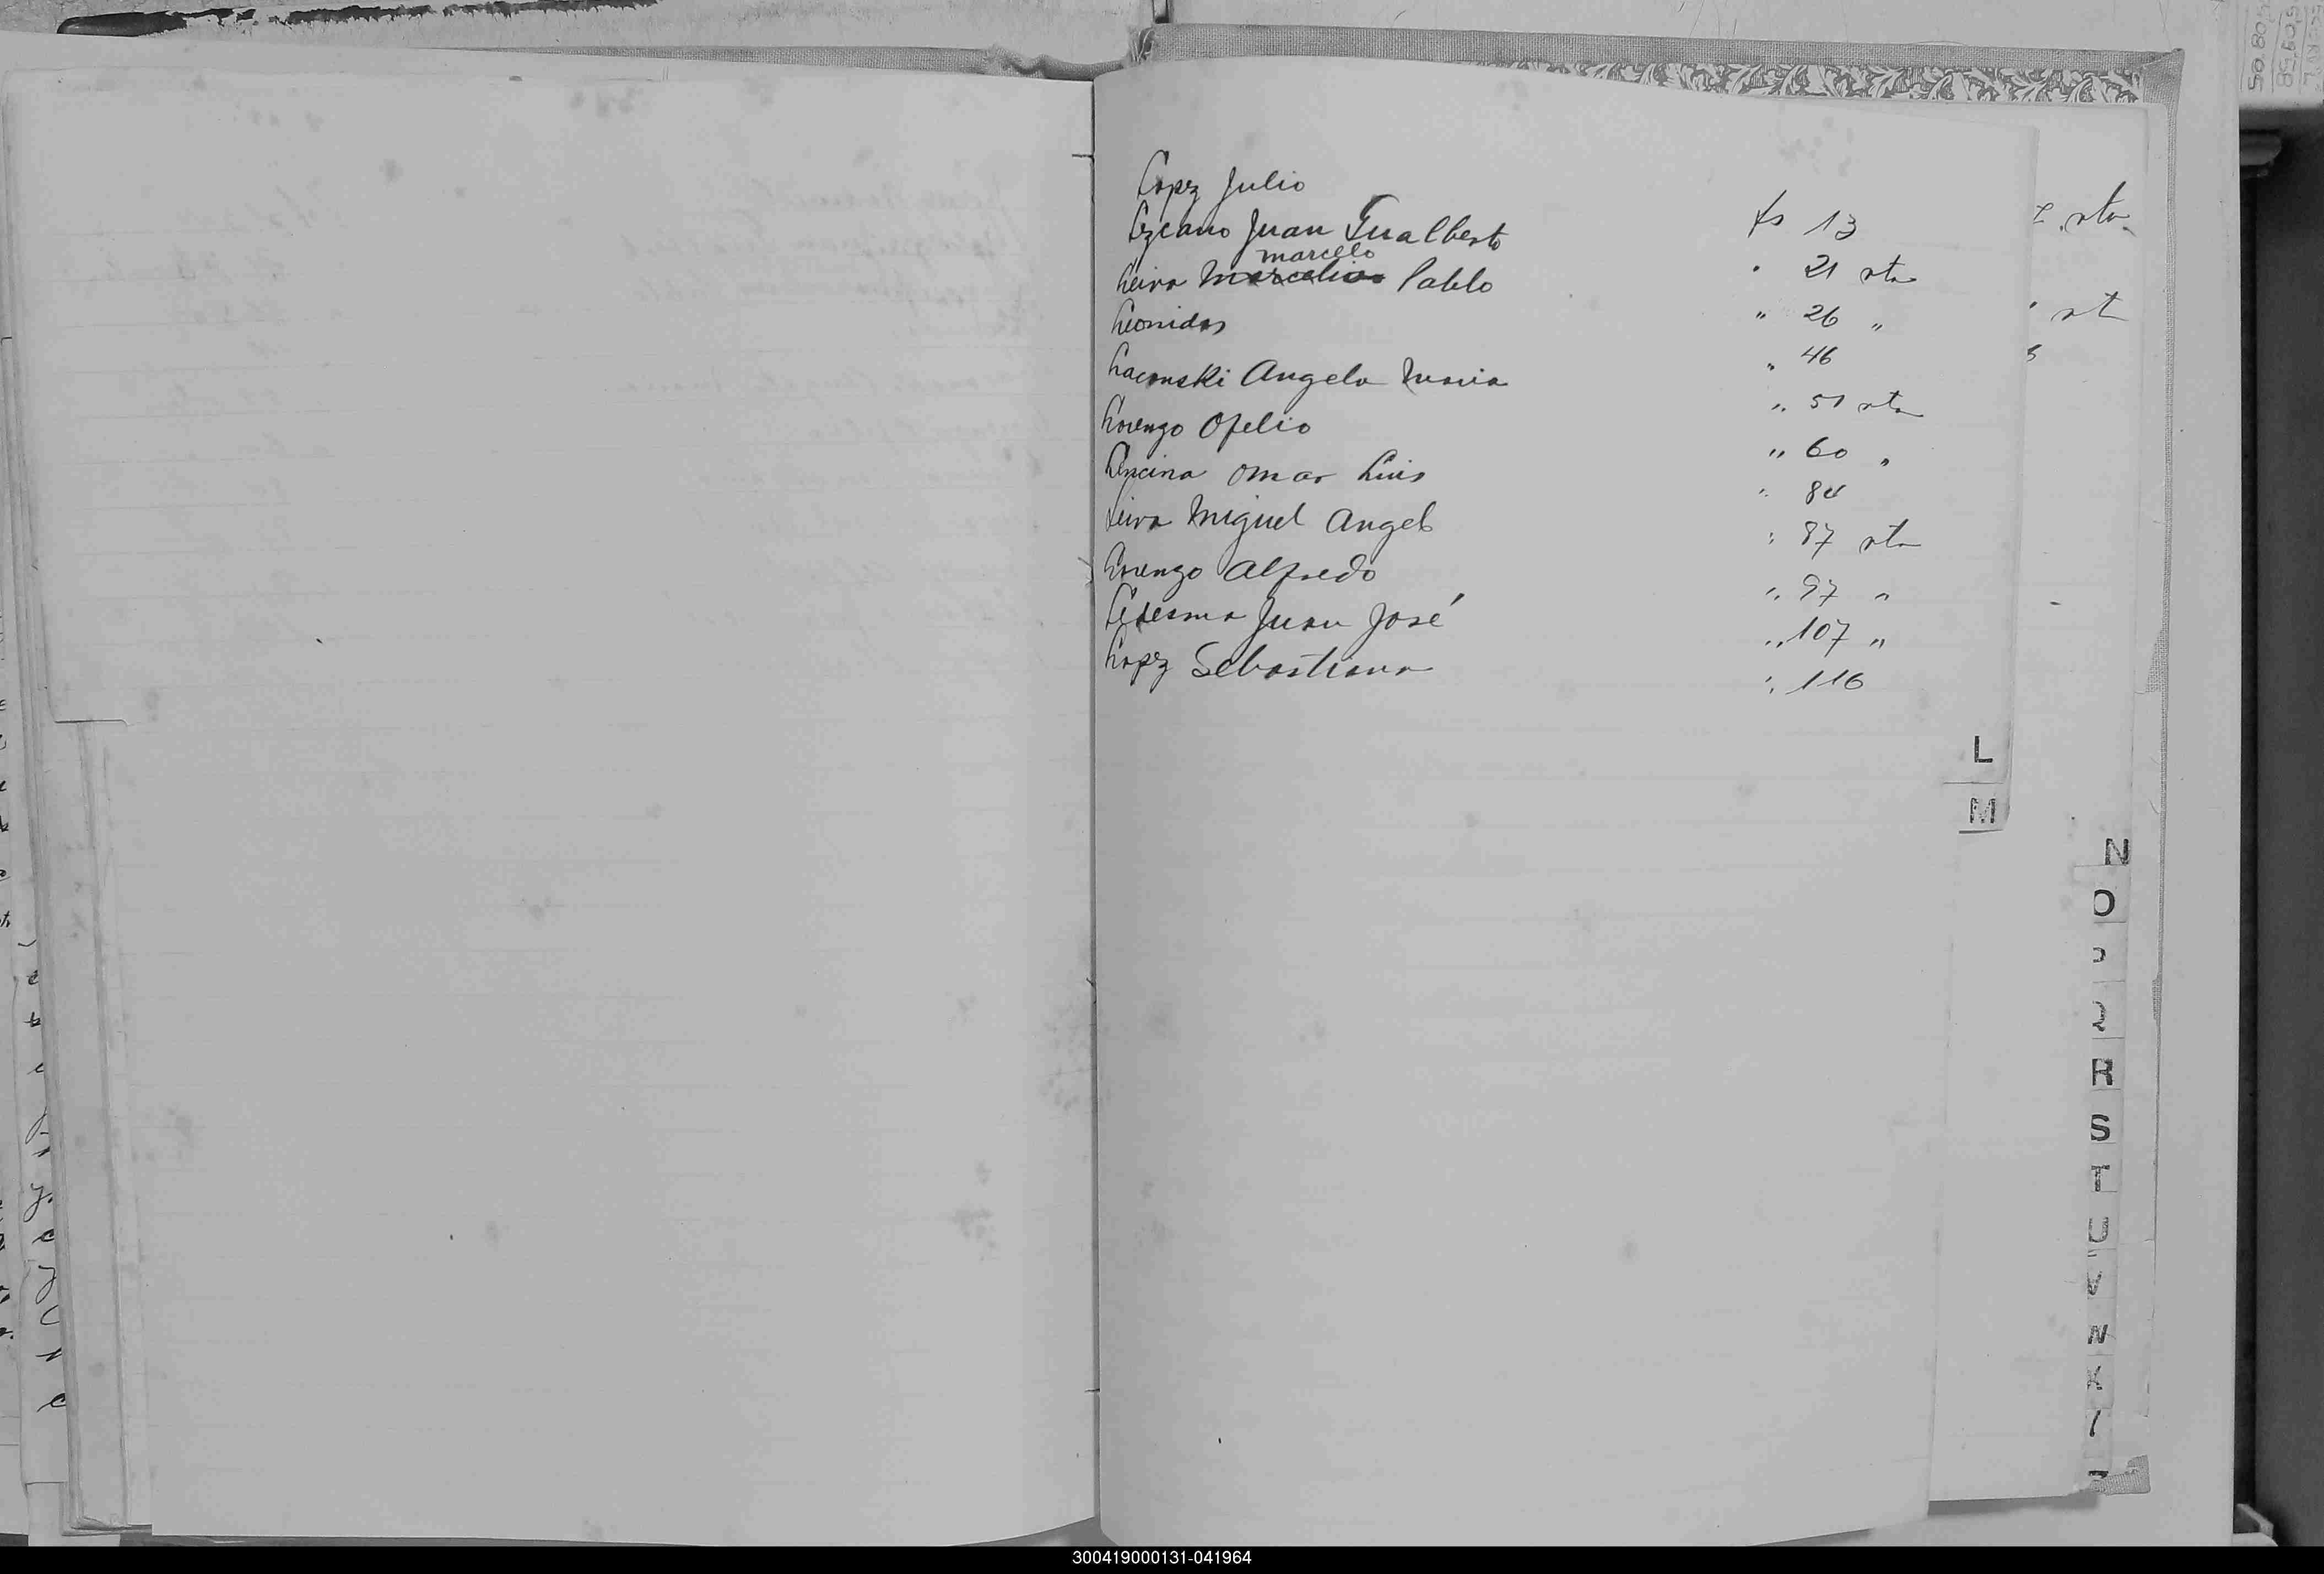 Lopez Julio fs 13
Lezcano Juan Gualberto " 21 vta
marcelo
Leiva Marcelino Pablo " 26 "
Leonidas " 46
Laconski Angela Maria " 51 vta
Lorenzo Ofelio " 60 "
Lencina Omar Luis " 84
Leiva Miguel Angel " 87 vta
Lorenzo Alfredo " 97 "
Ledesma Juan José " 107 "
Lopez Sebastiana " 116
vta
vt
L
M
N
O
R
S
T
U
V
W
X
300419000131-041964